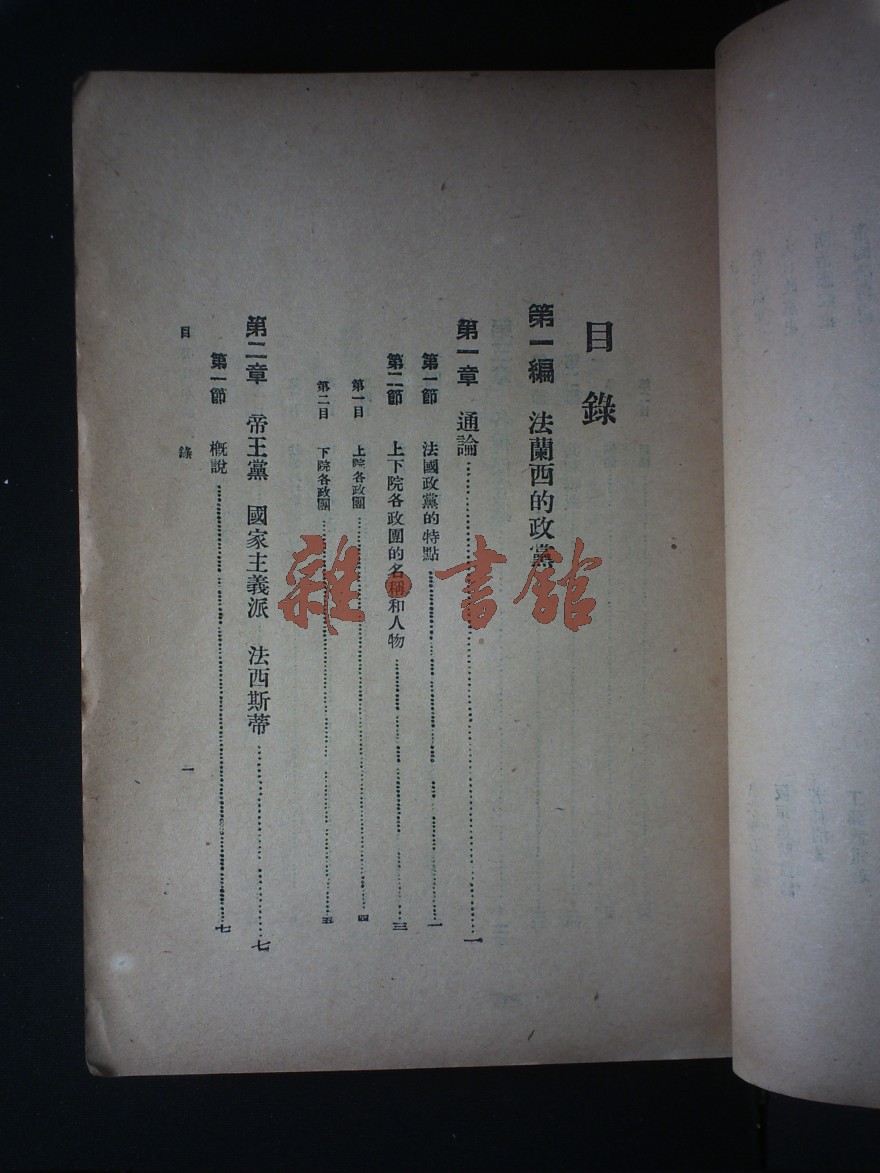 目錄
第一編 法蘭西的政黨
第一章 通論…………一
第一節 法國政黨的特點…………一
第二節 上下院各政團的名稱和人物…………三
第一目 上院各政團…………四
第二目 下院各政團…………五
第二章 帝王黨 國家主義派 法西斯蒂…………七
第一節 概說…………七
目錄 一
雜·書館